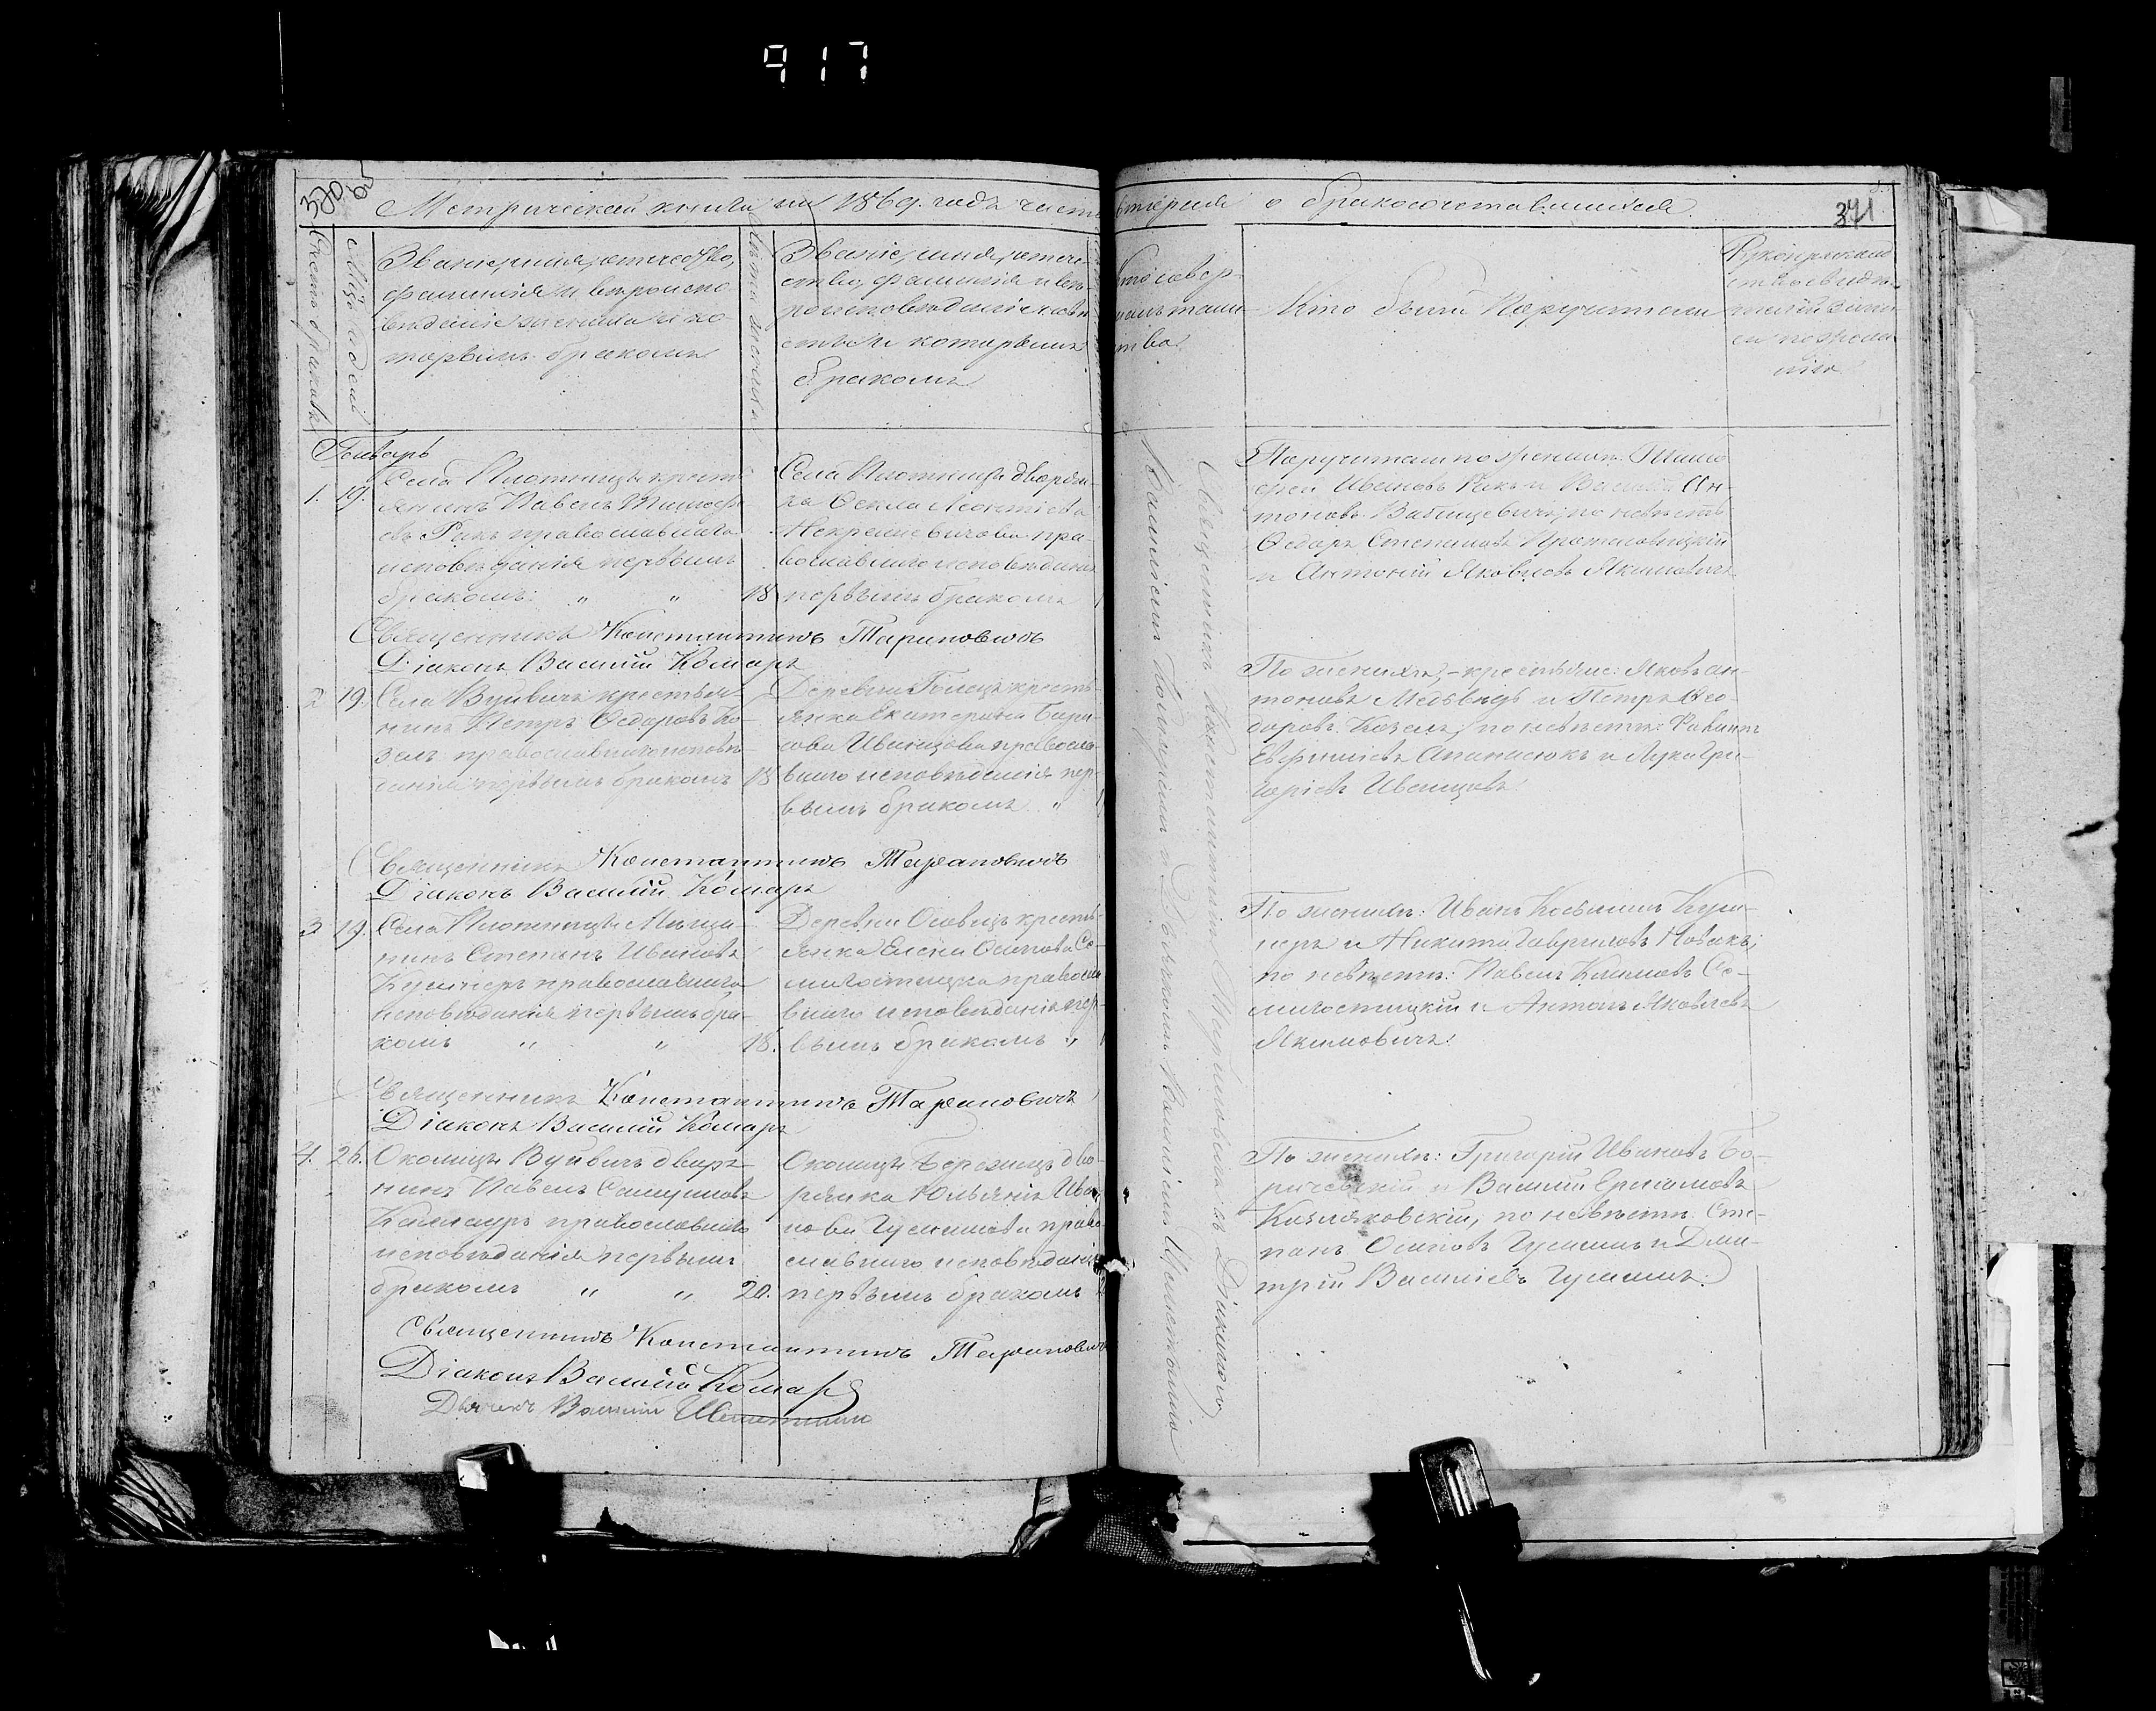 917
370
Метрическая книга на 1869. годъ часть вторая о бракосочетавшихся.
371
Счетъ браковъ
Мѣцъ и день
Званіе, имя, отчество,
фамилія и вѣроиспо
вѣданіе жениха и ко
торымъ бракомъ
Лѣта жениха
Званіе, имя, отче-
ство, фамилія и вѣ-
роисповѣданіе невѣ
сты и которымъ
бракомъ
Кто совер-
шалъ таин-
ства.
Кто были Поручители
Январь
1. 19.
Села Плотницы крест
янинъ Павелъ Тимоф
евъ Ракъ православнаго
исповѣданія первымъ
бракомъ. " "
18
Села Плотницы дворян-
ка Фекла Леонтіева
Некрашевичова пра-
вославнаго исповѣданія
первымъ бракомъ
Поручители по женихѣ: Тимо
фей Ивановъ Ракъ и Василій Ан-
тоновъ Вабищевичъ; по невѣстѣ
Ѳедоръ Степановъ Протасовицкій
и Антоній Яковлевъ Якимовичъ
Священникъ Константинъ Тарановичъ
Діаконъ Василій Комаръ
2 19.
Села Вуйвичъ крестья-
нинъ Петръ Ѳедоровъ Ко-
зелъ православнаго исповѣ-
данія первымъ бракомъ
18
Деревни Голецъ кресть-
янка Екатерина Бори-
сова Иванцова правосла-
внаго исповѣданія пер-
вымъ бракомъ "
По женихѣ, - крестьяне: Яковъ Ан-
тоновъ Медвѣдь и Петръ Ѳео-
доровъ Козелъ, по невѣстѣ:
Евфиміевъ Апанасюкъ и Лука Гри-
горіевъ Иванцовъ.
Священникъ Константинъ Тарановичъ
Діаконъ Василій Комаръ
3 19.
Села Плотницы Мѣща-
нинъ Степанъ Ивановъ
Кушнеръ православнаго
исповѣданія первымъ бра-
комъ " "
18.
Деревни Осовецъ кресть-
янка Елена Осипова Се-
милостицка правосла
внаго исповѣданія пер-
вымъ бракомъ "
По женихѣ: Иванъ Косьминъ Куш-
неръ и Никита Гавриловъ Новакъ;
по невѣстѣ: Павелъ Климовъ Се-
милостицкій и Антонъ Яковлевъ
Якимовичъ.
Священникъ Константинъ Тарановичъ
Діаконъ Василій Комаръ
4. 26.
Околицы Вуйвичъ дворя-
нинъ Павелъ Самуиловъ
православнаго
исповѣданія первымъ
бракомъ " "
20.
Околицы Бережцъ дво-
рянка Юльянія Ива-
нова православнаго исповѣданія
первымъ бракомъ
По женихѣ: Григорій Ивановъ Бо-
ричевскій и Василій Ермоловъ
Козляковскій, по невѣстѣ: Сте-
панъ Осиповъ и Дми-
трій Василіевъ
Священникъ Константинъ Тарановичъ
Діаконъ Василій Комаръ
Дьячекъ Василій
Священникъ Константинъ Тарановичъ съ Діакономъ
Василіемъ Комаромъ и Дьячкомъ Василіемъ